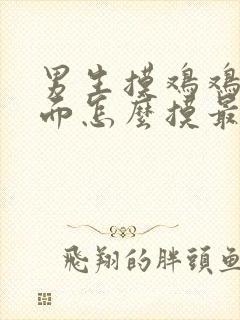 男生摸鸡鸡
而怎麼摸最
飛翔的胖頭魚